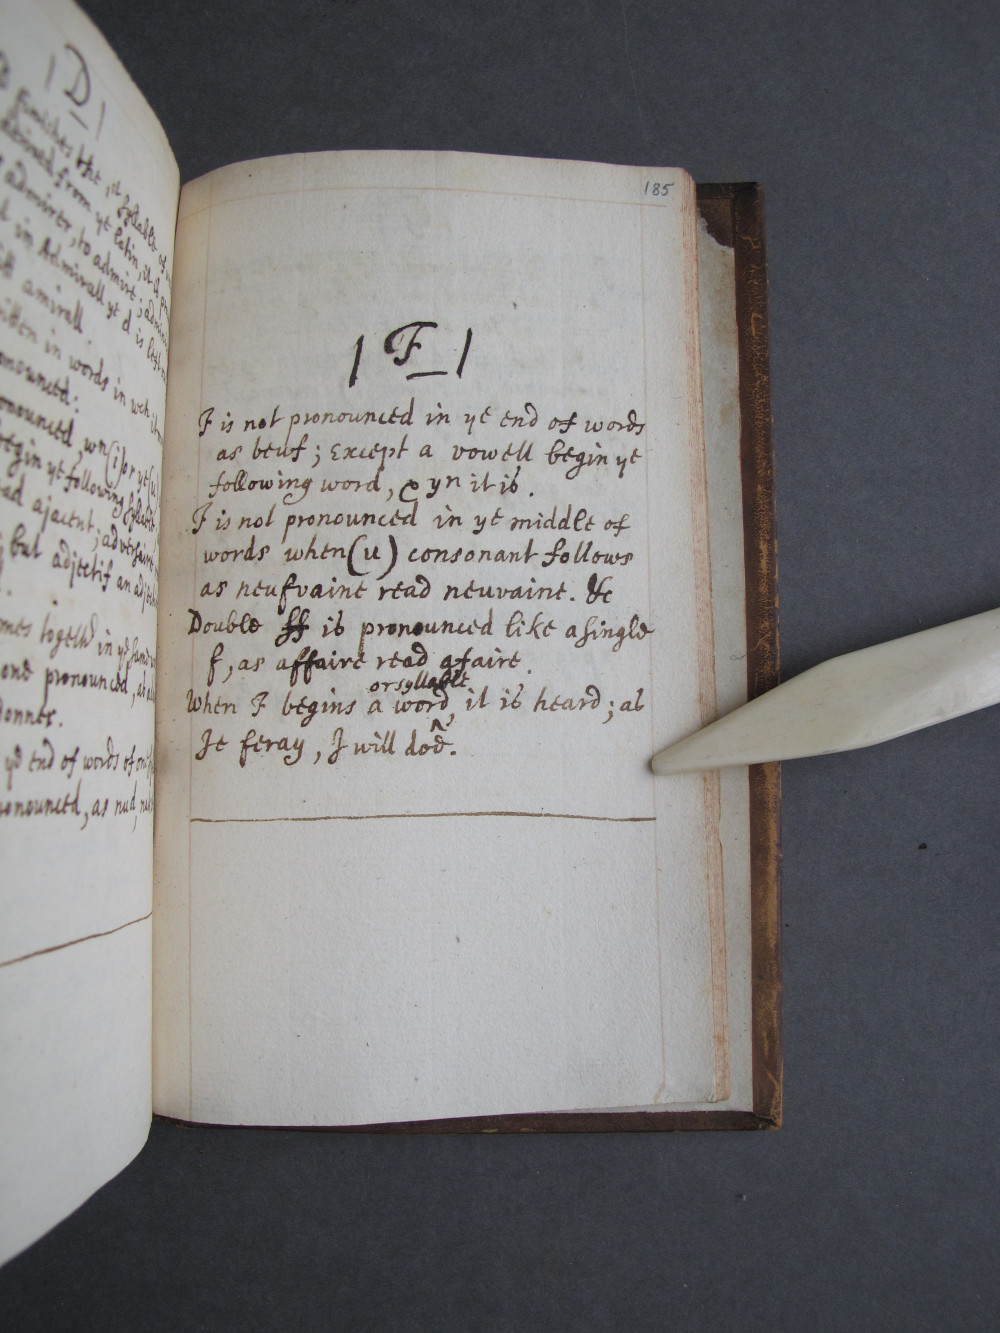 | D |
furnishes the 1t syllable of
derived from ye latin, it is
admirer, to admire;
in Admirall ye d is left
amirall.
in words in wch it
pronounced:
pronounced, wn (i) or ye (u)
begin ye following syllable
ajacent; adversaire
but adjectif an
comes togethd in ye same
one pronounced, as
donner.
ye end of words of one
pronounced, as nud,
185
| F |
F is not pronounced in ye end of words
as beuf; Except a vowell begin ye
following word, & yn it is.
F is not pronounced in ye middle of
words when (u) consonant follows
as neufvaine read neuvaine. &c
Double ff is pronounced like a single
f, as affaire read afaire.
or syllable
When F begins a word^ it is heard; as
Je feray, I will doe.